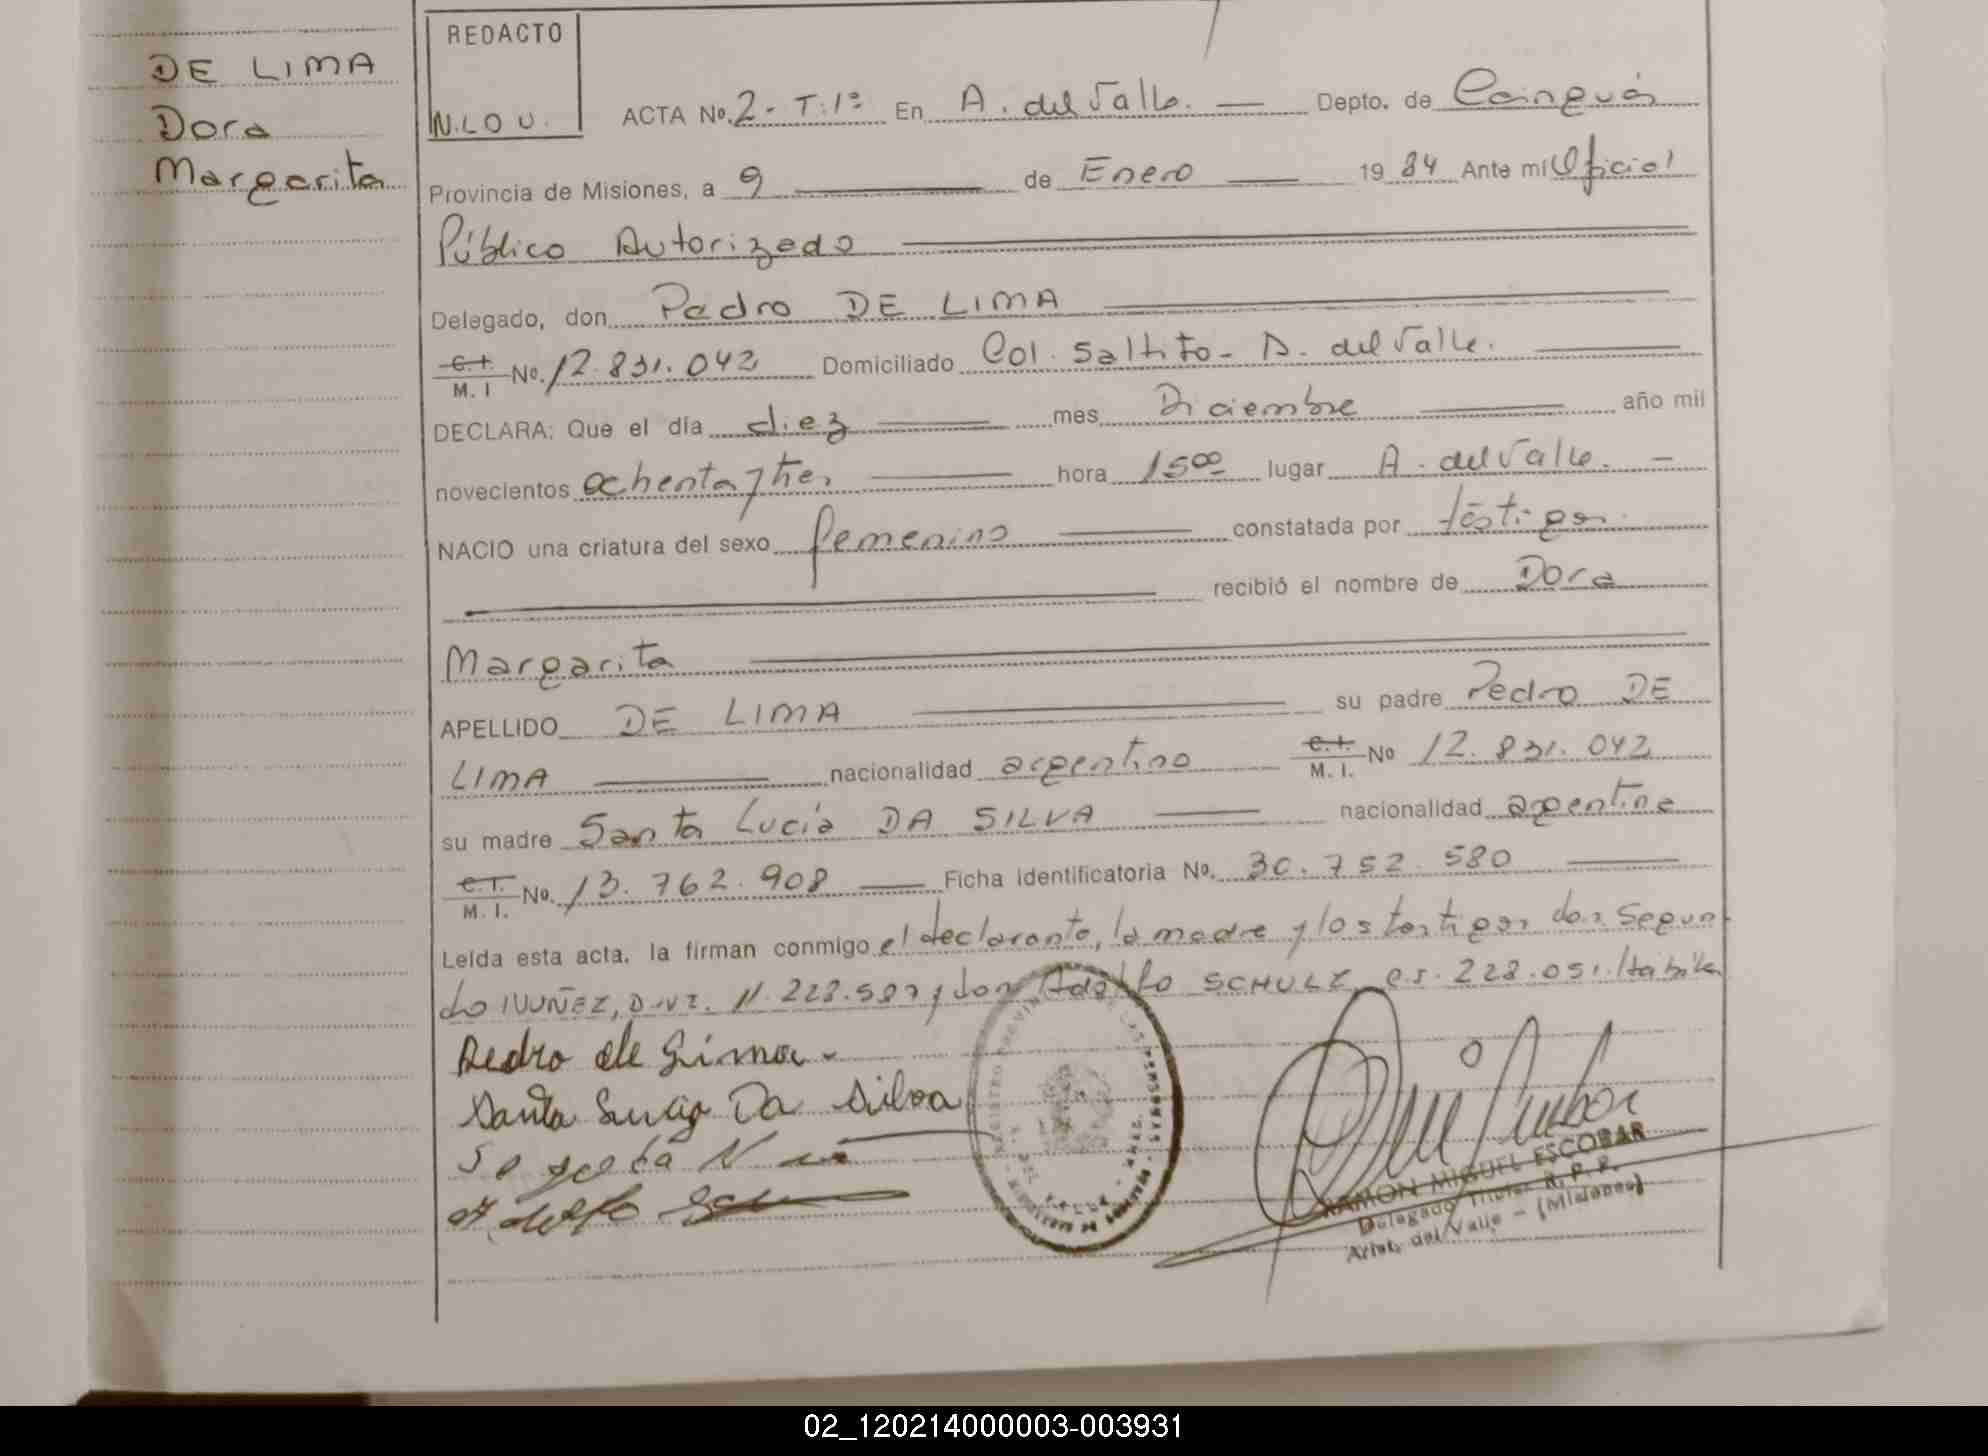 DE LIMA
Dora
Margarita
REDACTO
N.LO U.
ACTA No. 2- T:1º En A. del Valle. Depto. de Cainguás
Provincia de Misiones, a 9 de Enero 19 84 Ante mi Oficial
Público Autorizado
Delegado, don Pedro DE LIMA
C.I. M. I No. 12.831.042 Domiciliado Col. Saltito - A. del Valle.
DECLARA: Que el día diez mes Diciembre año mil
novecientos ochenta y tres hora 15ºº lugar A. del Valle. -
NACIO una criatura del sexo femenino constatada por testigos.
recibió el nombre de Dora
Margarita
APELLIDO DE LIMA su padre Pedro DE
LIMA nacionalidad argentino C.I. M. I. No 12.831.042
su madre Santa Lucía DA SILVA nacionalidad argentina
C.I. M. I. No. 13.762.908 Ficha identificatoria No. 30.752.580
Leída esta acta, la firman conmigo el declarante, la madre y los testigos don Segun-
do NUÑEZ, D.N.I. 11.223.587 y don Adolfo SCHULZ, C.I. 228.051. Hábiles
Pedro de Lima.
Santa Lucia Da Silva
Adolfo
RAMON MIGUEL ESCOBAR
Delegado Titular R. P. P.
Arist. del Valle - (Misiones)
02_120214000003-003931